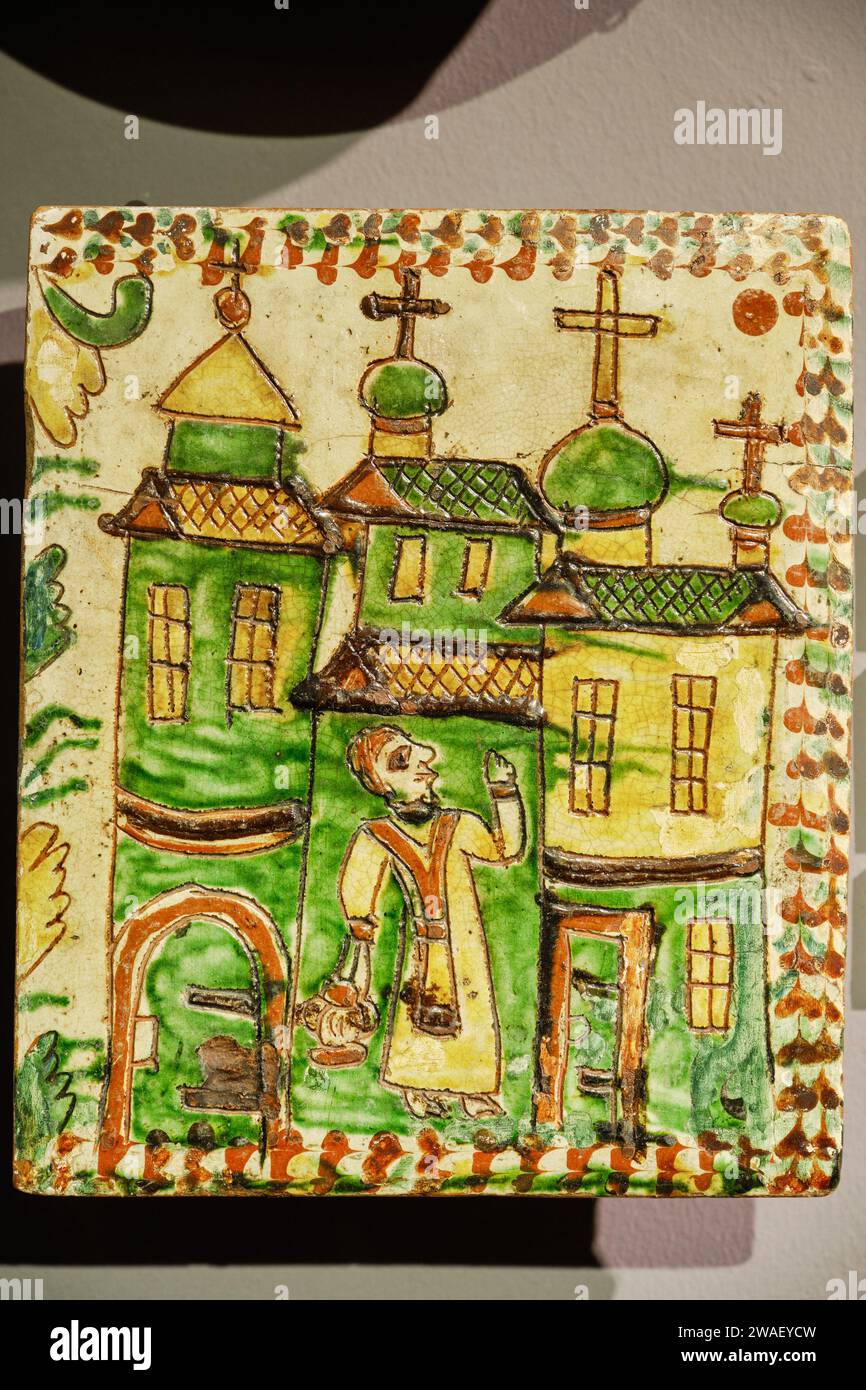 alamy
Image ID: 2WAEYCW
www.alamy.com